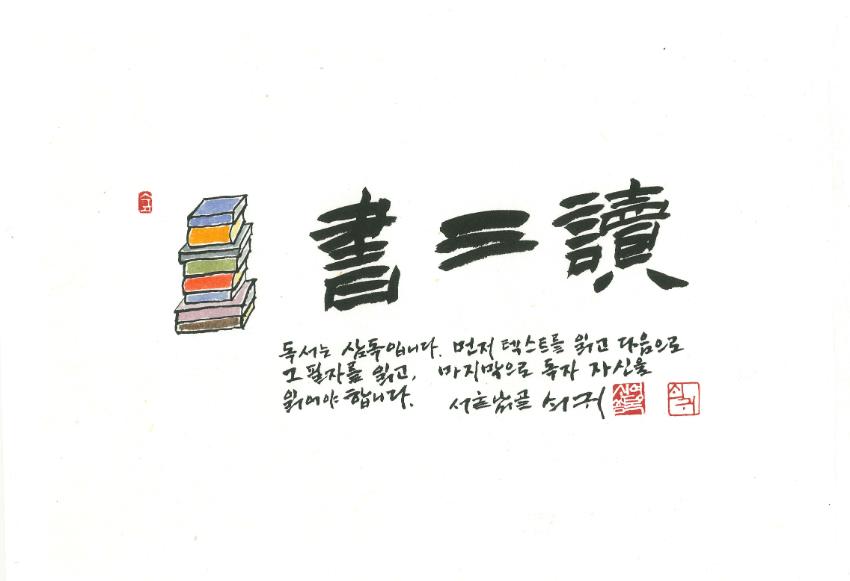 書三讀
독서는 삼독입니다. 먼저 텍스트를 읽고 다음으로
그 필자를 읽고, 마지막으로 독자 자신을
읽어야 합니다. 쇠귀